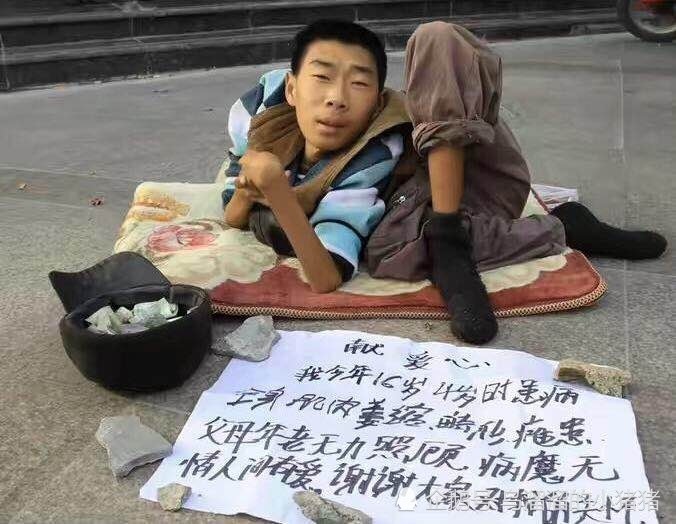 献 爱 心
我今年16岁 4岁时患病
全身肌肉萎缩.畸形瘫患.
父母年老无力照顾 病魔无
情人间有爱.谢谢大家